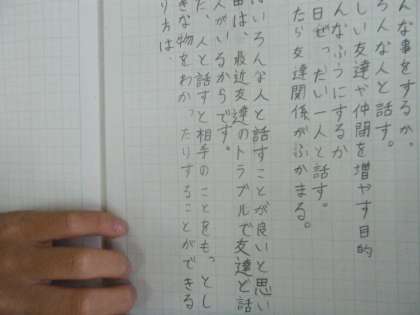 んな事をするか。
ろんな人と話す。
しい友達や仲間を増やす目的
んなふうにするか
日ぜったい一人と話す。
たら友達関係がふかまる。
いろんな人と話すことが良いと思い
由は、最近友達のトラブルで友達と話
人がいるからです。
た、人と話すと相手のことをもっとし
きな物をわかったりすることができる
り方は、